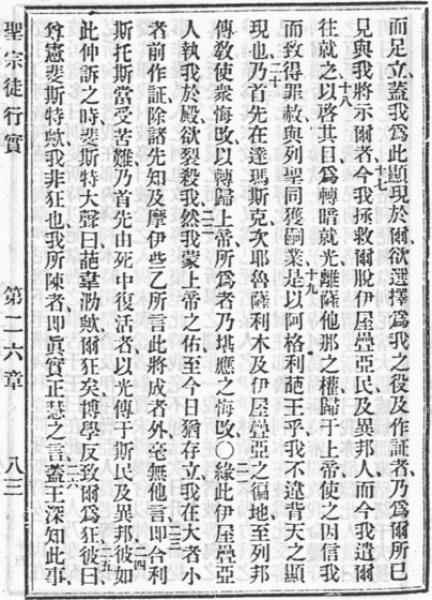 而足立、蓋我爲此顯現於爾、欲選擇爲我之役及作証者、乃爲爾所已
見與我將示爾者、十七今我拯救爾脫伊屋疊亞民及異邦人、而今我遣爾
十八往就之以啓其目、爲轉暗就光、離薩他那之權、歸于上帝、使之因信我
而致得罪赦、與列聖同獲嗣業、十九是以阿格利葩王乎、我不違背天之顯
現也、二十乃首先在達瑪斯克、次耶魯薩利木、及伊屋疊亞之徧地、至列邦
傳敎使衆悔攺、以轉歸上帝、所爲者乃堪應之悔攺○二一緣此伊屋疊亞
人執我於殿、欲裂殺我、二二然我蒙上帝之佑、至今日猶存立、我在大者小
者前作証、除諸先知及摩伊些乙所言此將成者外、毫無他言、二三即合利
斯托斯當受苦難、乃首先由死中復活者、以光傳于斯民及異邦、二四彼如
此伸訴之時、斐斯特大聲曰、葩韋泐歟、爾狂矣、博學反致爾爲狂、二五彼曰
尊憲斐斯特歟、我非狂也、我所陳者、即眞實正慧之言、二六蓋王深知此事、
聖宗徒行實 第二六章 八三